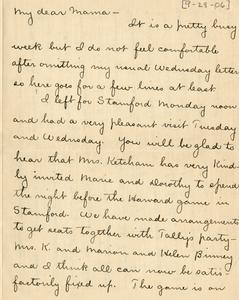 [9-28-06]
My dear Mama-
It is a pretty busy
week but I do not feel comfortable
after omitting my usual Wednesday letter
so here goes for a few lines at least
I left for Stamford Monday noon
and had a very pleasant visit Tuesday
and Wednesday. You will be glad to
hear that Mrs. Ketcham has very kind-
ly invited Marie and Dorothy to spend
the night before the Harvard game in
Stamford. We have made arrangements
to get seats together with Tally's party-
Mrs. K. and Marion and Helen Binney
and I think all can now be satis-
factorily fixed up. The game is on